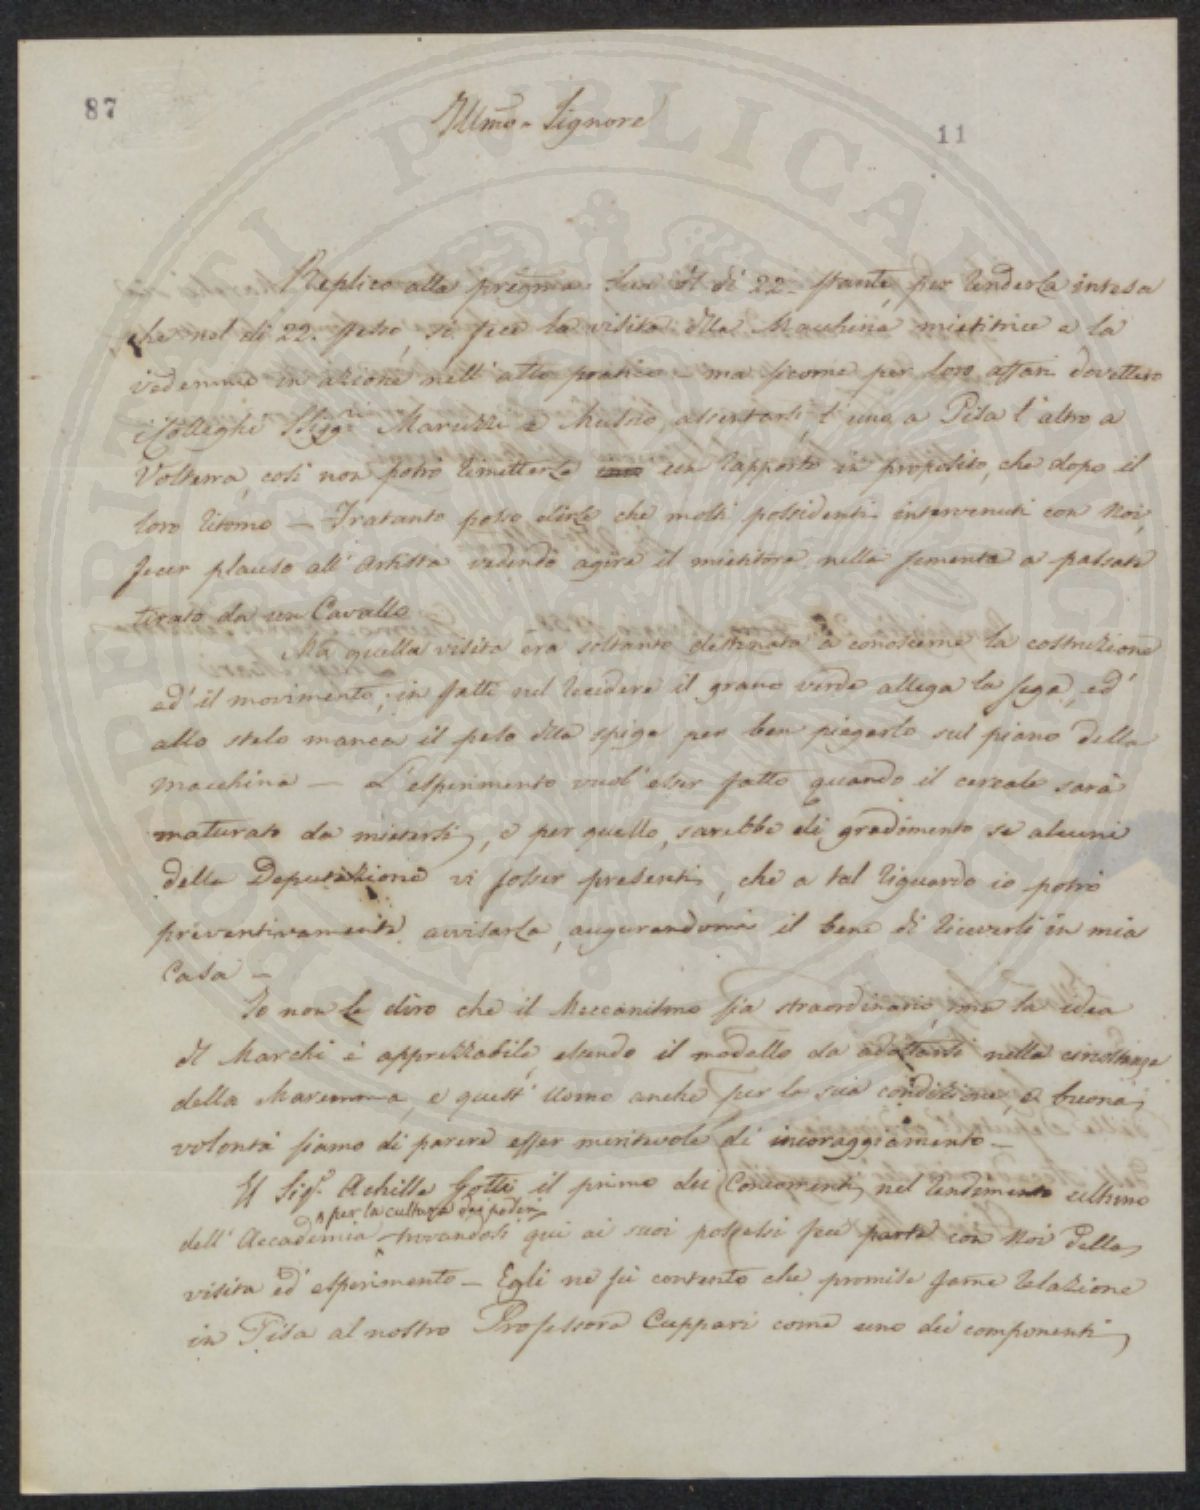 87
11
Illmo. Signore
Replico alla pregma. Sua del dì 22. stante, per renderla intesa
che nel dì 22. stesso, si fece la visita della Macchina mietitrice e la
vedemmo in azione nell' atto pratico – ma siccome per loro affari dovettero
i Colleghi SSigri. Maruzzi e assentarsi l' uno a Pisa l' altro a
Volterra, così non potrò rimetterle un rapporto in proposito, che dopo il
loro ritorno – Fratanto posso dirle che molti possidenti intervenuti con Noi,
fecer plauso all' Artista vedendo agire il mietitore nella sementa a passate
tirato da un Cavallo.
Ma quella visita era soltanto destinata a conoscerne la costruzione
ed' il movimento; in fatti nel recidere il grano verde allega la sega, ed'
allo stelo manca il peso della spiga per ben piegarlo sul piano della
macchina – L'esperimento vuol' esser fatto quando il cereale sarà
maturato da mietersi, e per quello, sarebbe di gradimento se alcuni
della Deputazione vi fosser presenti, che a tal riguardo io potrò
preventivamente avvisarla, augurandomi il bene di riceverli in mia
Casa –
Io non le dirò che il Meccanismo sia straordinario, ma la idea
del Marchi è apprezzabile, essendo il modello da adattarsi nelle circostanze
della Maremma, e quest' uomo anche per la sua condizione, e buona
volontà siamo di parere esser meritevole di incoraggiamento –
Il Sigr. Achille Gotti il primo dei Concorrenti nel rendimento ultimo
per la cultura dei poderi
dell' Accademia trovandosi qui ai suoi possessi fece parte con Noi della
visita ed' esperimento – Egli ne fù contento che promise farne relazione
in Pisa al nostro Professore Cuppari come uno dei componenti